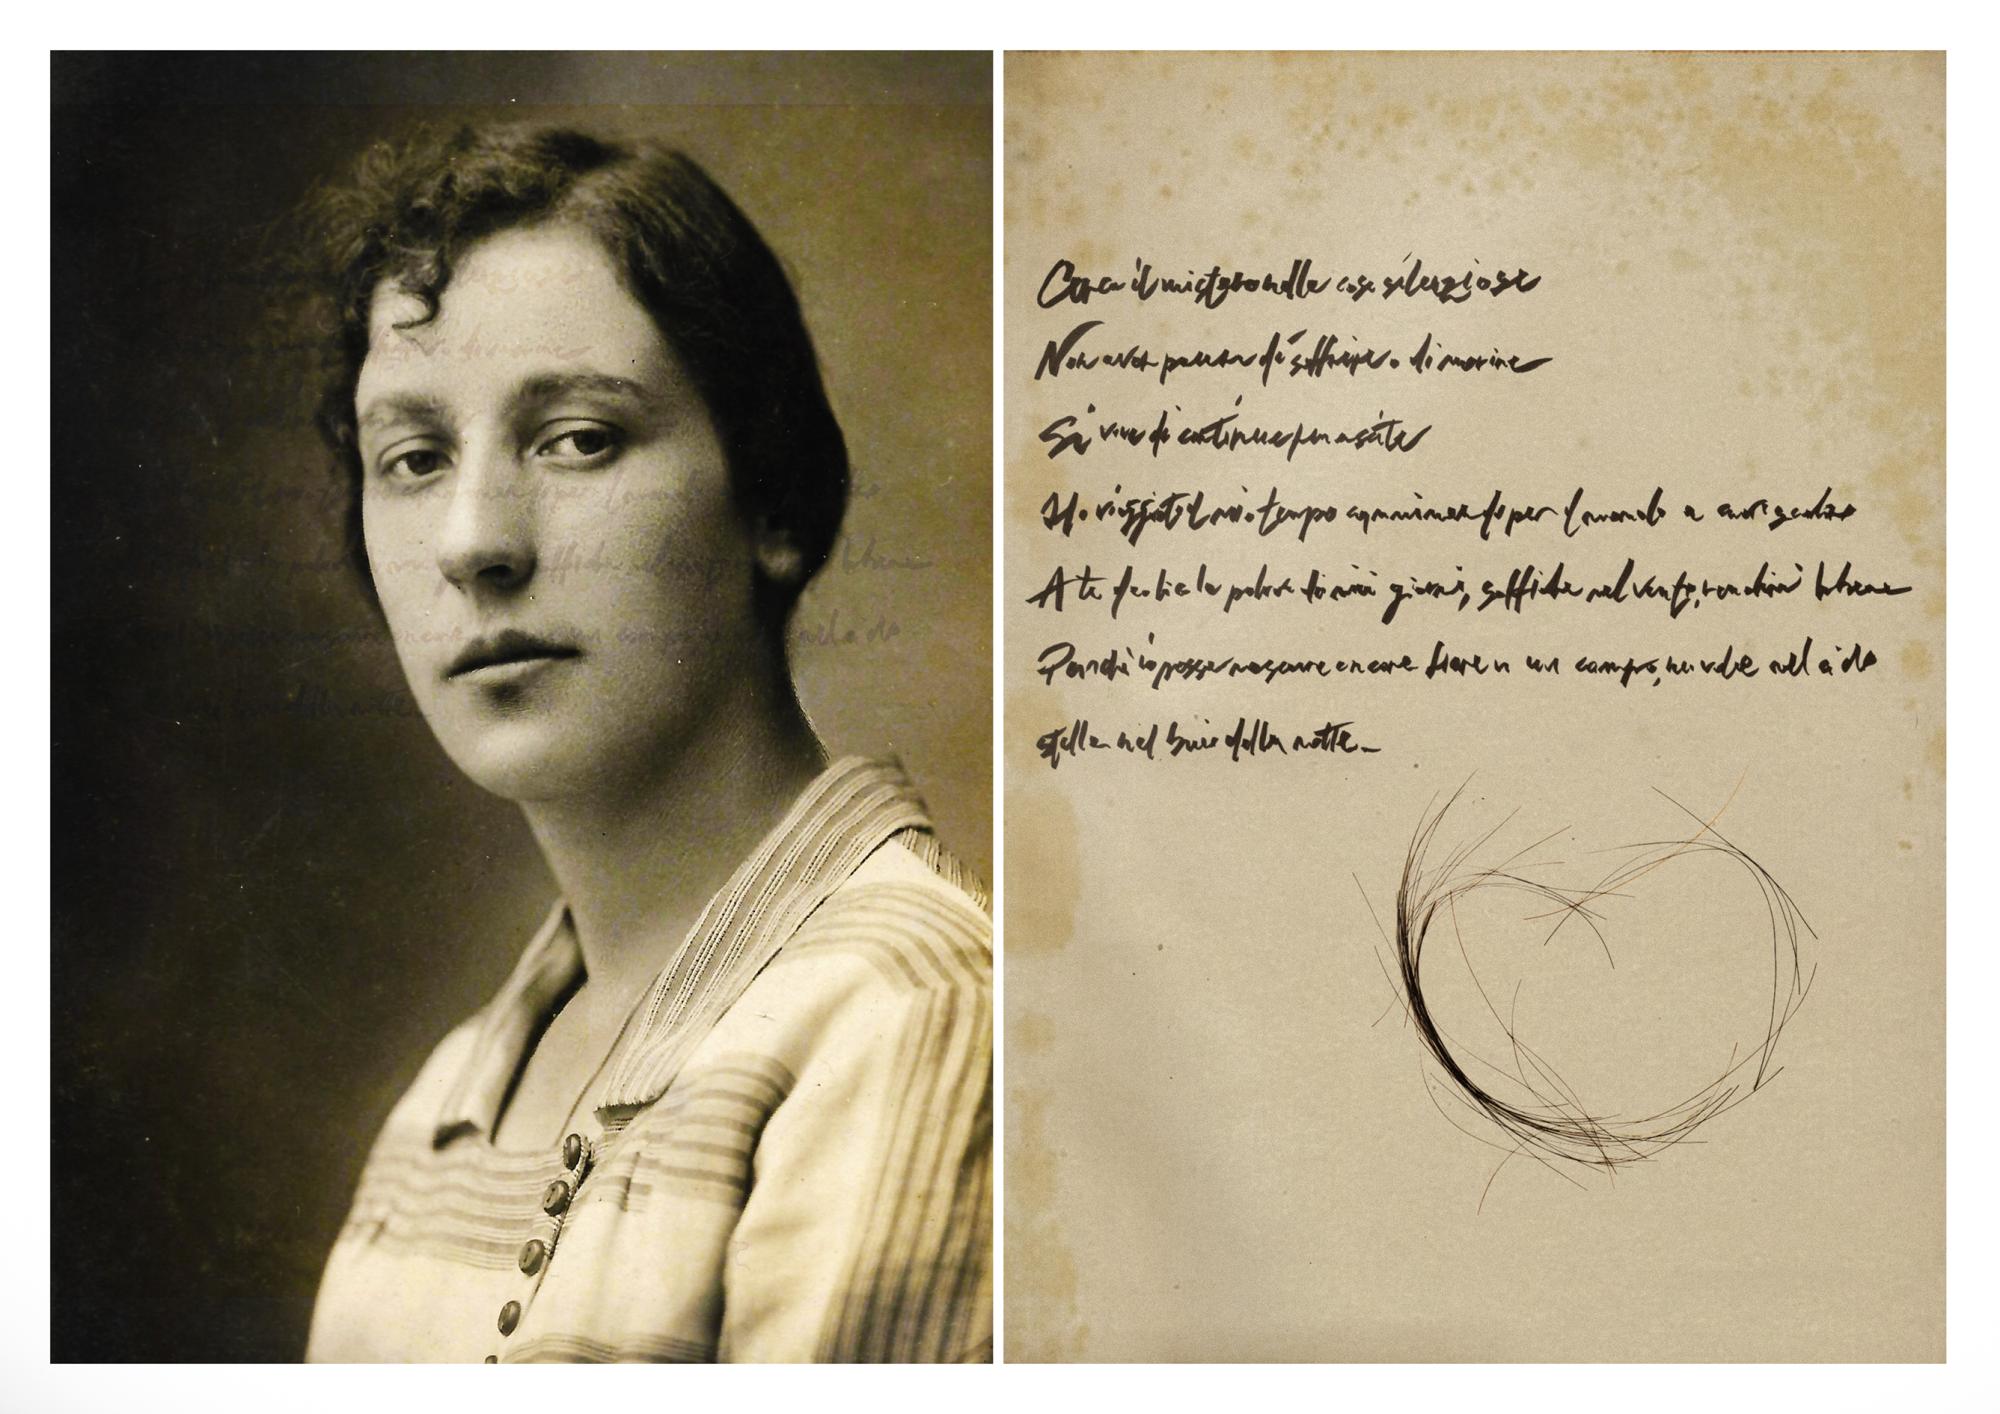 Cerca il mistero nelle cose silenziose
Non aver paura di soffrire o di morire
Si vive di continue rinascite
Ho viaggiato il mio tempo camminando per il mondo a
A te la polvere dei miei giorni, soffiala nel vento, rendimi libera
Perché io possa nascere ancora fiore in un campo, nuvola nel cielo
stella nel buio della notte